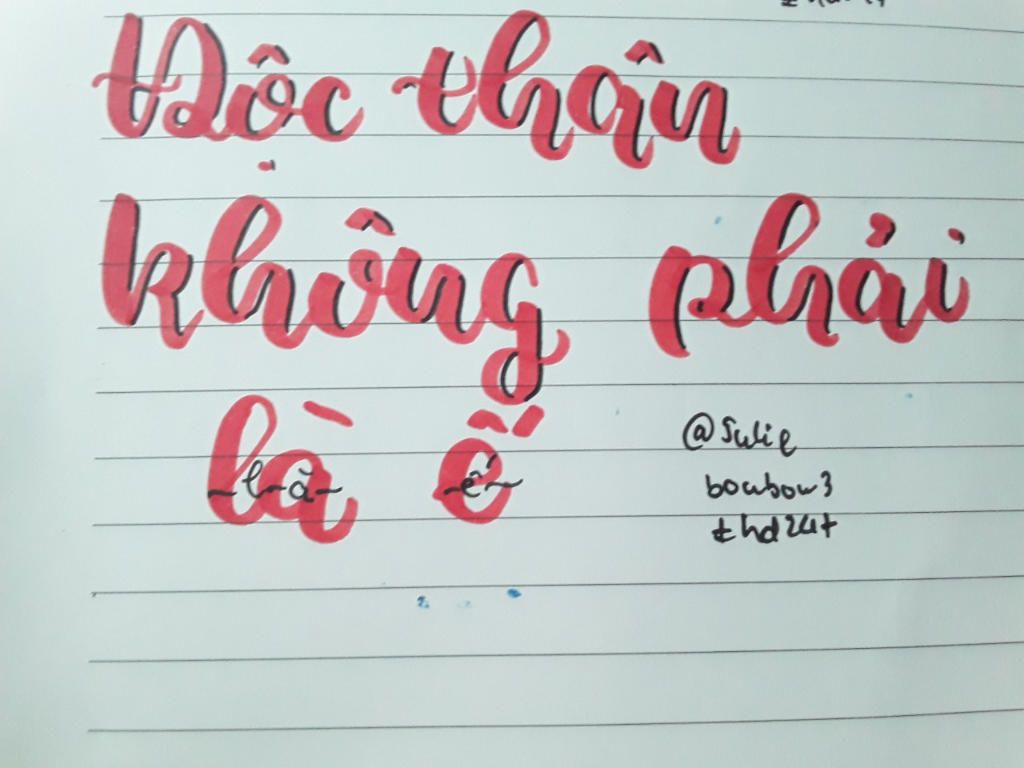 Độc thân
không phải
là ế
~là~ ~ế~
@Sulie
bowbow3
thd24t